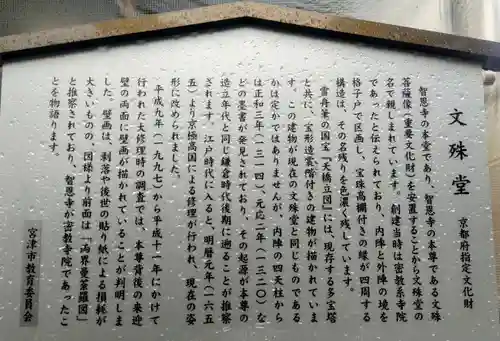 文殊堂
京都府指定文化財
智恩寺の本堂であり、智恩寺の本尊である文殊
菩薩像（重要文化財）を安置することから文殊堂の
名で親しまれています。創建当時は密教系寺院
であったと伝えられており、内陣と外陣の境を
格子戸で区画し、宝珠高欄付きの縁が四周する
構造は、その名残りを色濃く残しています。
雪舟筆の国宝「天橋立図」には、現存する多宝塔
と共に、宝形造裳階付きの建物が描かれていま
す。この建物が現在の文殊堂と同じものである
かは定かではありませんが、内陣の四天柱から
は正和三年（一三一四）、元応二年（一三二〇）な
どの墨書が発見されており、その起源が本尊の
造立年代と同じ鎌倉時代後期に遡ることが推察
されます。江戸時代に入ると、明暦元年（一六五
五）より京極高国による修理が行われ、現在の姿
形に改められました。
平成九年（一九九七）から平成十一年にかけて
行われた大修理時の調査では、本尊背後の来迎
壁の両面に壁画が描かれていることが判明しま
した。壁画は、剥落や後世の貼り紙による損耗が
大きいものの、図様より前面は「両界曼荼羅図」
と推察されており、智恩寺が密教寺院であったこ
とを物語ります。
宮津市教育委員会